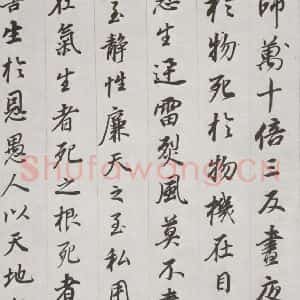 師萬十倍三反晝夜
於物死於物機在目
恩生迅雷裂風莫不
至靜性廉天之至私用
在氣生者死之根死者
害生於恩愚人以天地
Shufawang.cn